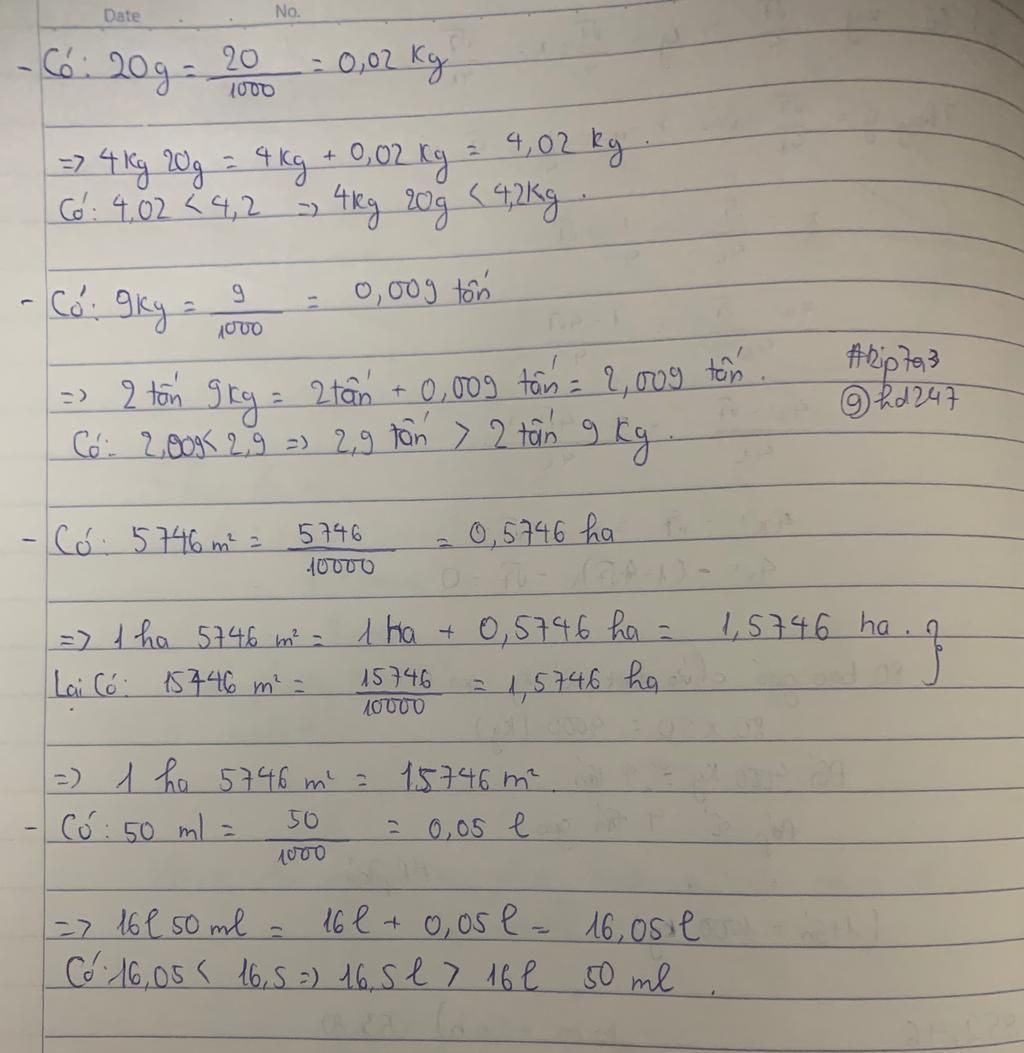 Date . . No.
- Có: 20g = 20/1000 = 0,02 kg
=> 4kg 20g = 4kg + 0,02 kg = 4,02 kg.
Có: 4,02 < 4,2 => 4kg 20g < 4,2kg.
- Có: 9kg = 9/1000 = 0,009 tấn
=> 2 tấn 9kg = 2tấn + 0,009 tấn = 2,009 tấn.
Có: 2,009 < 2,9 => 2,9 tấn > 2 tấn 9 kg.
@hd247
- Có: 5746 m² = 5746/10000 = 0,5746 ha
=> 1 ha 5746 m² = 1 ha + 0,5746 ha = 1,5746 ha. }
Lại Có: 15746 m² = 15746/10000 = 1,5746 ha
=> 1 ha 5746 m² = 15746 m².
- Có: 50 ml = 50/1000 = 0,05 l
=> 16l 50 ml = 16l + 0,05 l = 16,05 l
Có: 16,05 < 16,5 => 16,5 l > 16l 50 ml.